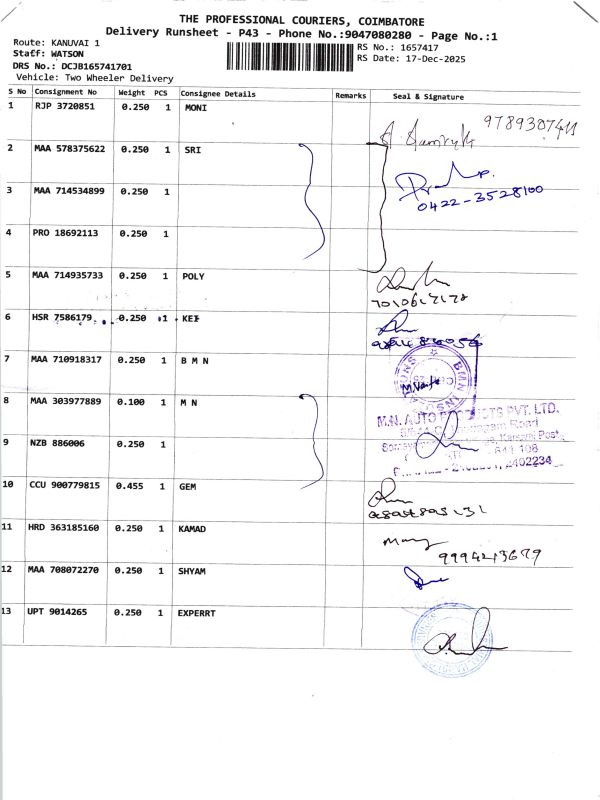 THE PROFESSIONAL COURIERS, COIMBATORE
Delivery Runsheet - P43 - Phone No.:9047080280 - Page No.:1
Route: KANUVAI 1
Staff: WATSON
DRS No.: DCJB165741701
Vehicle: Two Wheeler Delivery
RS No.: 1657417
RS Date: 17-Dec-2025
S No Consignment No Weight PCS Consignee Details Remarks Seal & Signature
1 RJP 3720851 0.250 1 MONI
9789307411
2 MAA 578375622 0.250 1 SRI
0422-3528100
3 MAA 714534899 0.250 1
4 PRO 18692113 0.250 1
5 MAA 714935733 0.250 1 POLY
6 HSR 7586179 0.250 1 KEI
7 MAA 710918317 0.250 1 B M N
8 MAA 303977889 0.100 1 M N
M.N. AUTO PRODUCTS PVT. LTD.
9 NZB 886006 0.250 1
641 108
2402234
10 CCU 900779815 0.455 1 GEM
11 HRD 363185160 0.250 1 KAMAD
9994213679
12 MAA 708072270 0.250 1 SHYAM
13 UPT 9014265 0.250 1 EXPERRT